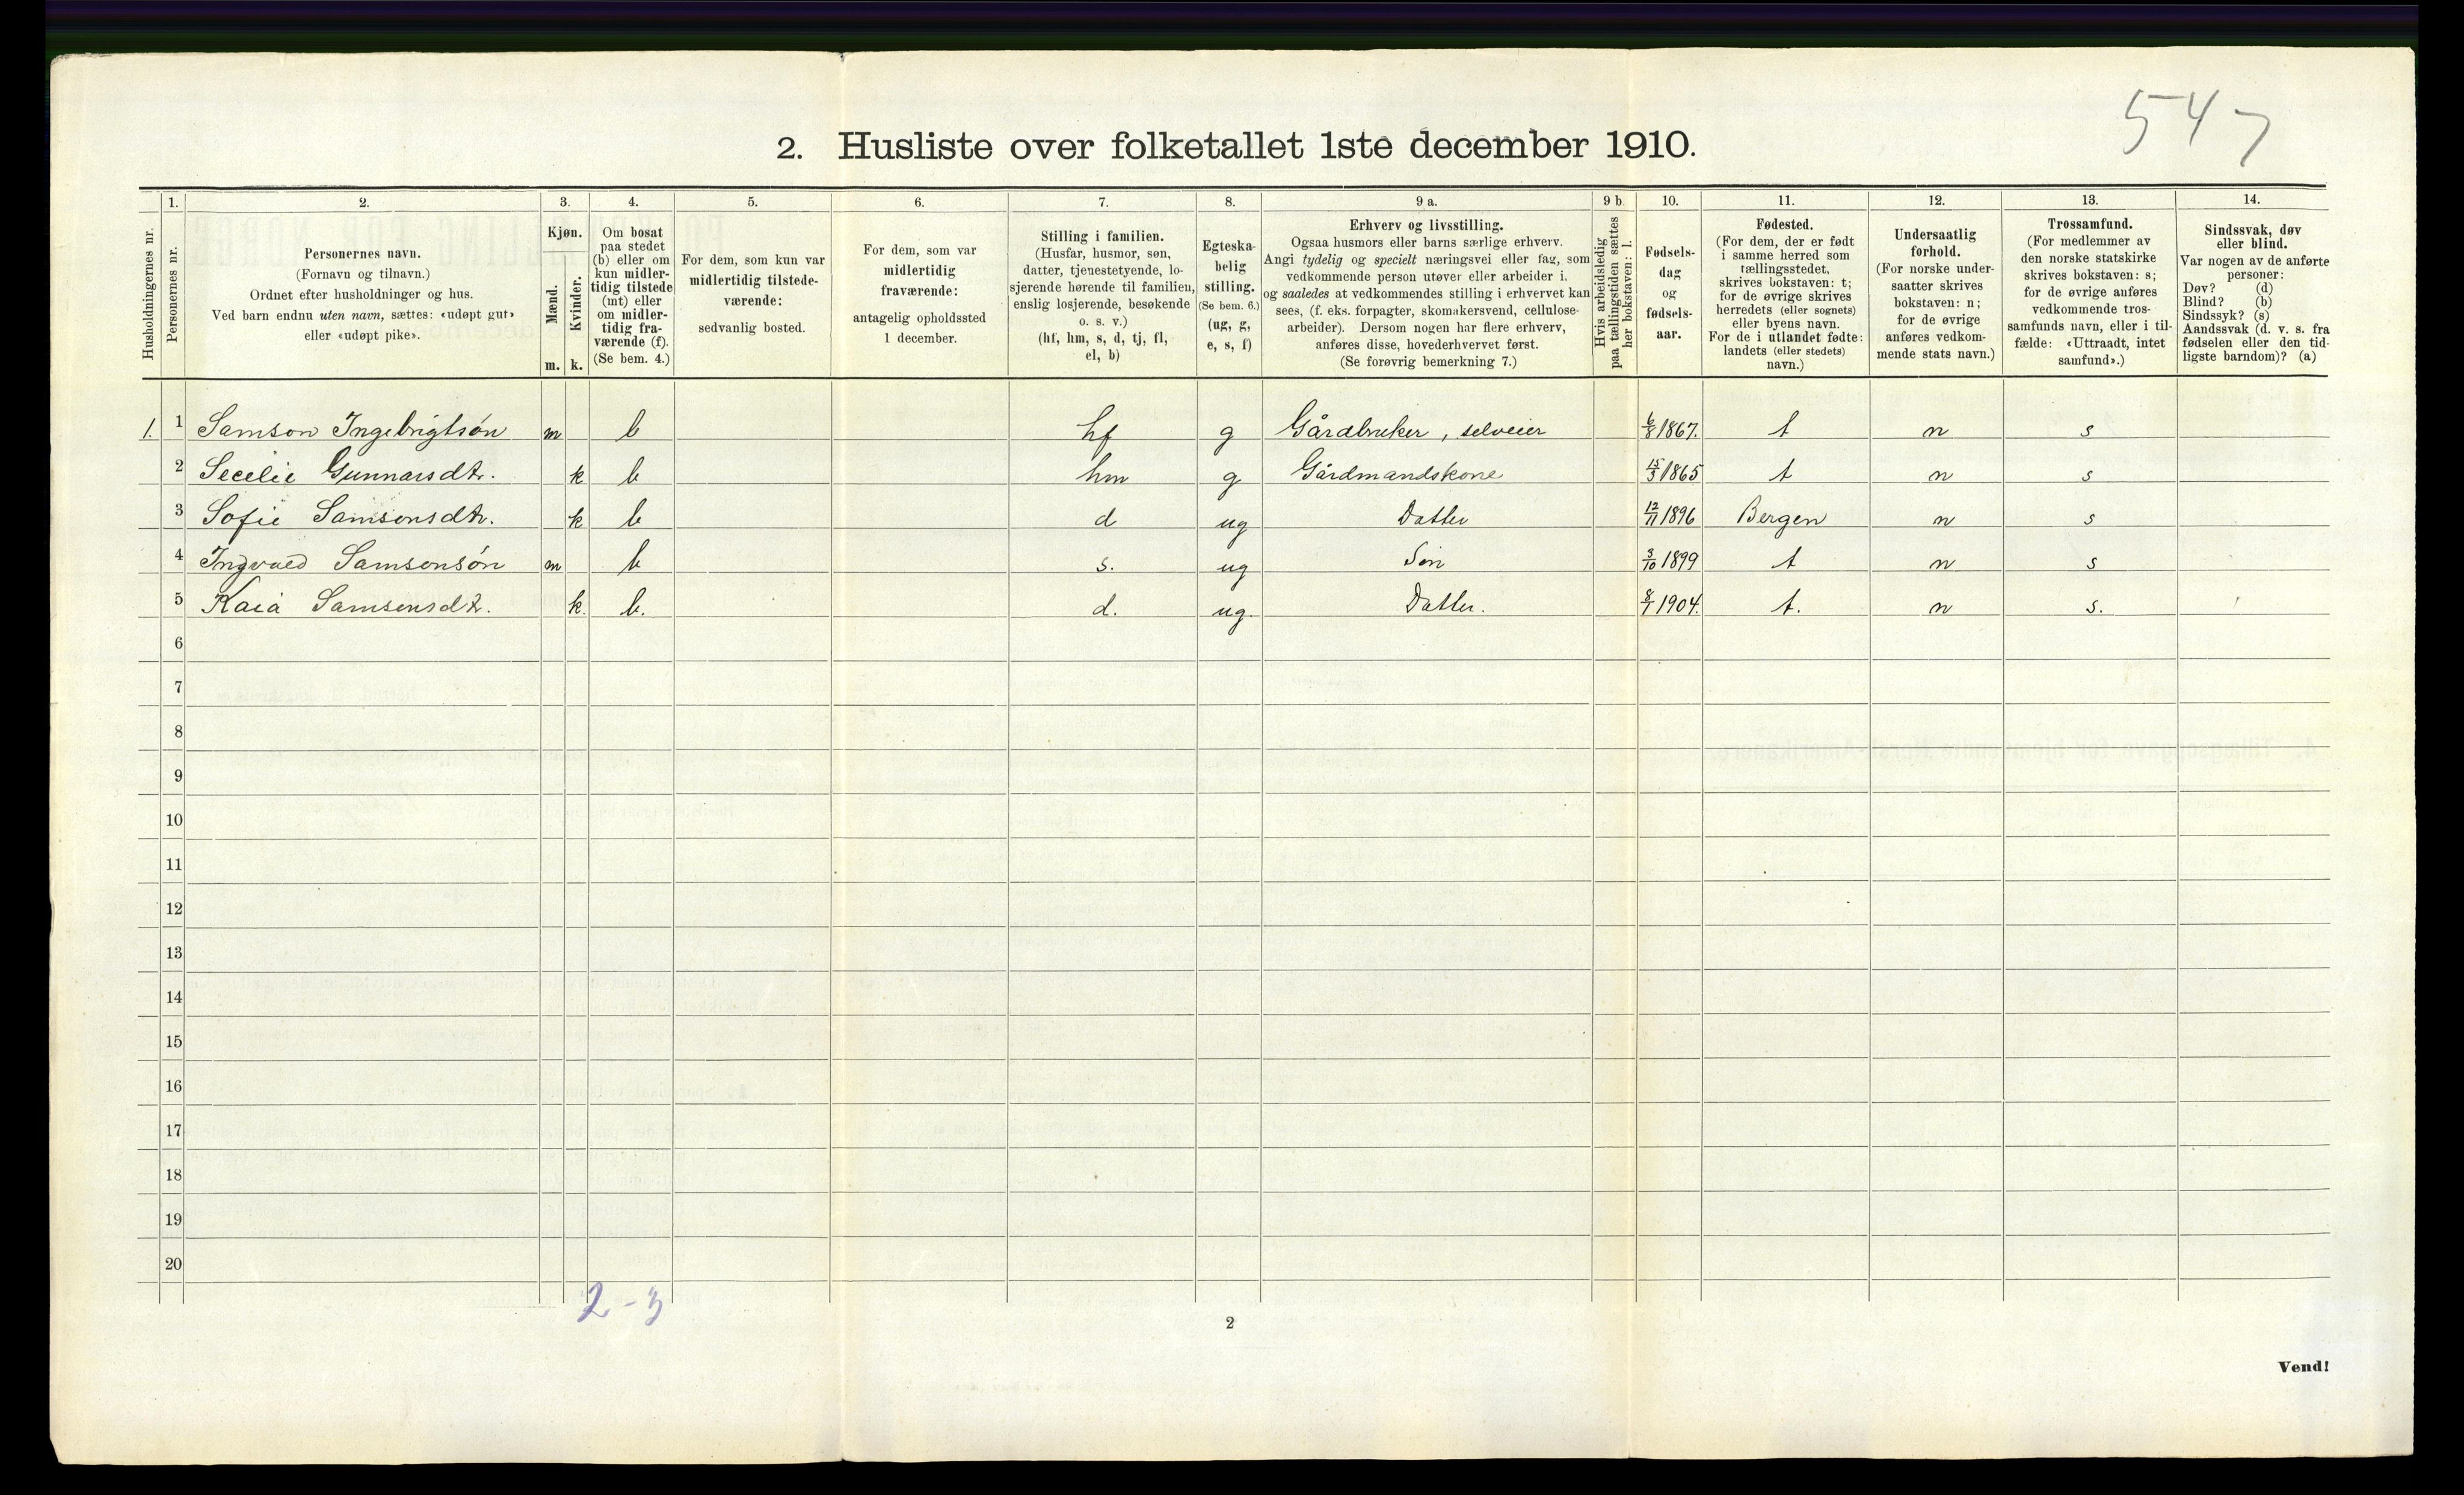 547
2. Husliste over folketallet 1ste december 1910.
Husholdningernes nr.
1.
Personernes nr.
2.
Personernes navn.
(Fornavn og tilnavn.)
Ordnet efter husholdninger og hus.
Ved barn endnu uten navn, sættes: «udøpt gut»
eller «udøpt pike».
3.
Kjøn.
Mænd.
Kvinder.
m. k.
4.
Om bosat
paa stedet
(b) eller om
kun midler-
tidig tilstede
(mt) eller
om midler-
tidig fra-
værende (f).
(Se bem. 4.)
5.
For dem, som kun var
midlertidig tilstede-
værende:
sedvanlig bosted.
6.
For dem, som var
midlertidig
fraværende:
antagelig opholdssted
1 december.
7.
Stilling i familien.
(Husfar, husmor, søn,
datter, tjenestetyende, lo-
sjerende hørende til familien,
enslig losjerende, besøkende
o. s. v.)
(hf, hm, s, d, tj, fl,
el, b)
8.
Egteska-
belig
stilling.
(Se bem. 6.)
(ug, g,
e, s, f)
9 a.
Erhverv og livsstilling.
Ogsaa husmors eller barns særlige erhverv.
Angi tydelig og specielt næringsvei eller fag, som
vedkommende person utøver eller arbeider i,
og saaledes at vedkommendes stilling i erhvervet kan
sees, (f. eks. forpagter, skomakersvend, cellulose-
arbeider). Dersom nogen har flere erhverv,
anføres disse, hovederhvervet først.
(Se forøvrig bemerkning 7.)
9 b.
Hvis arbeidsledig
paa tællingstiden sættes
her bokstaven: l.
10.
Fødsels-
dag
og
fødsels-
aar.
11.
Fødested.
(For dem, der er født
i samme herred som
tællingsstedet,
skrives bokstaven: t;
for de øvrige skrives
herredets (eller sognets)
eller byens navn.
For de i utlandet fødte:
landets (eller stedets)
navn.)
12.
Undersaatlig
forhold.
(For norske under-
saatter skrives
bokstaven: n;
for de øvrige
anføres vedkom-
mende stats navn.)
13.
Trossamfund.
(For medlemmer av
den norske statskirke
skrives bokstaven: s;
for de øvrige anføres
vedkommende tros-
samfunds navn, eller i til-
fælde: «Uttraadt, intet
samfund».)
14.
Sindssvak, døv
eller blind.
Var nogen av de anførte
personer:
Døv? (d)
Blind? (b)
Sindssyk? (s)
Aandssvak (d. v. s. fra
fødselen eller den tid-
ligste barndom)? (a)
1. 1 Samson Ingebrigtsøn m b hf g Gårdbruker, selveier 6/8 1867. t n s
2 Secelie Gunnarsdtr. k b hm g Gårdmandskone 15/5 1865 t n s
3 Sofie Samsonsdtr. k b d ug Datter 12/11 1896 Bergen n s
4 Ingvald Samsonsøn m b s. ug Søn 3/10 1899 t n s
5 Kaia Samsonsdtr. k. b. d. ug. Datter. 8/1 1904. t. n s.
6
7
8
9
10
11
12
13
14
15
16
17
18
19
20
2-3
2
Vend!